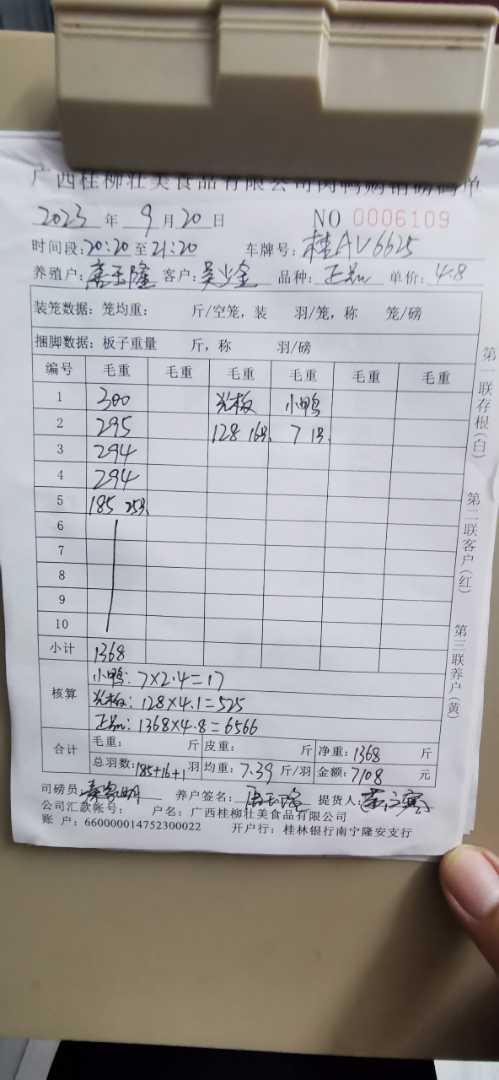 广西桂柳壮美食品有限公司肉鸭购销磅码单
2023 年 9 月 20 日 NO 0006109
时间段:20:20 至 21:20 车牌号: 桂AV6625
养殖户: 客户: 吴少金 品种: 单价: 4.8
装笼数据: 笼均重: 斤/空笼, 装 羽/笼, 称 笼/磅
捆脚数据: 板子重量 斤, 称 羽/磅
编号 毛重 毛重 毛重 毛重 毛重 毛重
1 300 光板 小鸭
2 295 128 16只 7 1只
3 294
4 294
5 185 25只
6
7
8
9
10
小计 1368
小鸭: 7×2.4=17
核算 光板: 128×4.1=525
1368×4.8=6566
合计 毛重: 斤 皮重: 斤 净重: 1368 斤
总羽数: 185+16+1 羽 均重: 7.39 斤/羽 金额: 7108 元
司磅员: 养户签名: 提货人:
公司汇款账号: 户名: 广西桂柳壮美食品有限公司
账 户: 660000014752300022 开户行: 桂林银行南宁隆安支行
第一联存根(白)
第二联客户(红)
第三联养户(黄)